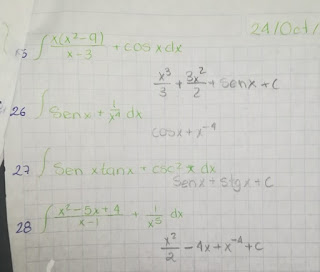 24/Oct/
25 ∫ x(x²-9)/x-3 + cosx dx
x³/3 + 3x²/2 + senx + c
26 ∫ Senx + 1/x⁴ dx
cosx + x⁻⁴
27 ∫ Sen x tanx + csc² x dx
Senx + stgx + C
28 ∫ x²-5x+4/x-1 + 1/x⁵ dx
x²/2 - 4x + x⁻⁴ + C